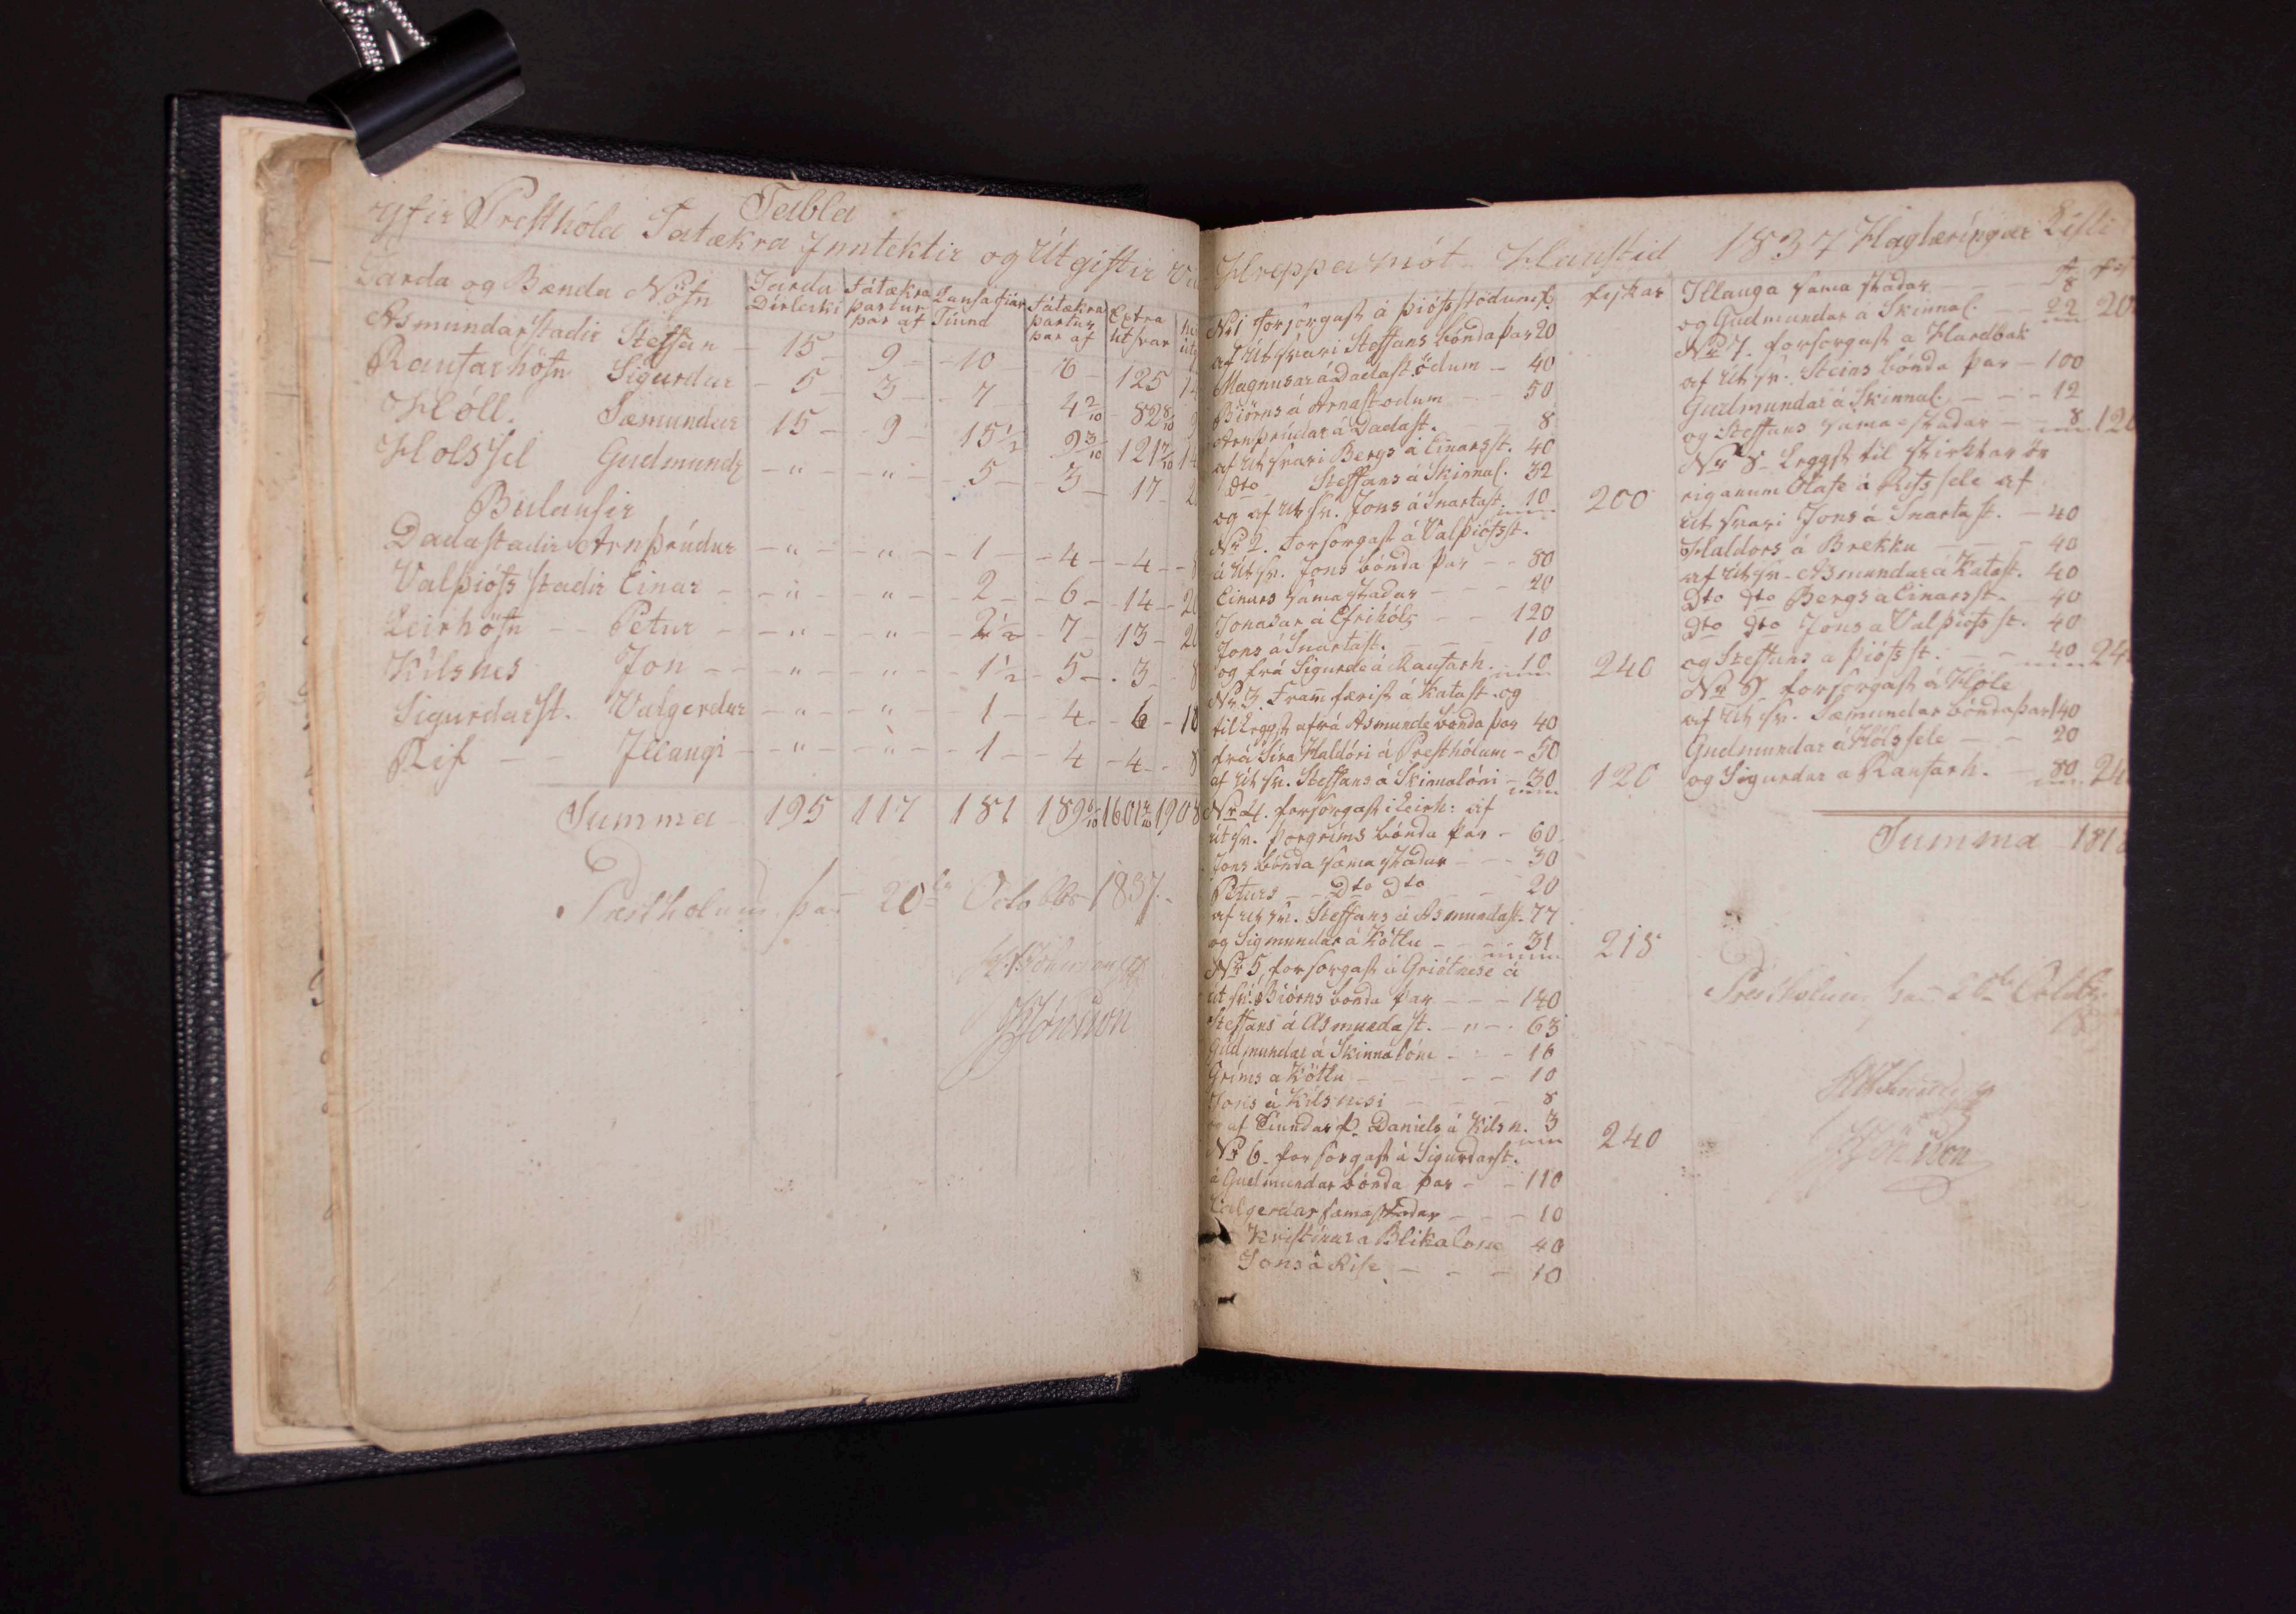 Tabla
Yfir Presthóla Fatækra Inntektir og Útgiftir
Jarda og Bænda Nöfn Jarda Dírleiki Fátækra partur þar af Lausafiár Tíund Fátækra partur þar af Extra útsvar
Asmundarstadir Steffán - 15 - 9 - 10 - 6 - 125
Raufarhöfn Sigurdur - 5 - 3 - 7 - 4 2/10 - 82 8/10
Hóll. Sæmundur 15 - 9 - 15 1/2 9 3/10 121 7/10
Holssel Gudmundr - " - " - 5 - 3 - 17
Bulausir
Dadastadir Arnþrúdur - " - " - 1 - 4 - 4
Valþiófsstadir Einar - " - " - 2 - 6 - 14
Leirhöfn - Petur - " - " - 2 1/2 - 7 - 13
Kílsnes Jon - " - " - 1 1/2 - 5 - 3
Sigurdarst. Valgerdur - " - " - 1 - 4 - 6
Rif - Illaugi - " - " - 1 - 4 - 4
Summa 195 117 181 189 6/10 1601 2/10 1908
Prestholum þan 20ta Octobr 1837.
Hreppamót Haustid 1837 Haglæringar Listi
Nr 1 forsorgast á þiófsstödum f. fiskar
af Útsvari Steffans bónda þar 20
Magnusar á Dadastödum - 40
Biörns á Arnastodum - 50
Arnþrúdar á Dadast. 8
af Utsvari Bergs á Einarsst. 40
dto Steffans á Skinnal. 32
og af Utsv. Jons á Snartast. 10 200
Nr 2. Forsorgast á Valþiófsst.
á Utsv. Jons bónda þar - 80
Einars samastadar - 20
Jonasar á Efrihóls - 120
Jons á Snartast. - 10
og frá Sigurde á Raufarh. 10 240
Nr 3. Framfærist á Katast. og
tilleggst afrá Asmunde bonda þar 40
frá Síra Haldóri á Presthólum - 50
af útsv. Steffans á Skinnalóni - 30 120
Nr 4. forsorgast i Leirh: af
útsv. Þorgríms bónda þar - 60
Jons bónda samastadar - 30
Peturs - Dto dto - 20
af utsv. Steffans á Asmundast. 77
og Sigmundar á Kötlu - 31 218
Nr 5, forsorgast á Griótnese á
útsv. Biörns bonda þar - 140
Steffans á Asmundast. - " - 63
Gudmundar á Skinnalóne - 16
Gríms a Kötlu - 10
Jons á Kílsnesi - 8
og af Tíundarf. Daniels á Kilsn. 3 240
Nr 6. forsorgast á Sigurdarst.
á Gudmundar bónda þar - 110
Valgerdar samastadar - 10
Kristínar a Blikalone 40
Jons á Rife - 10
Illauga sama stadar - 8
og Gudmundar a Skinnal. - 22 20
Nr 7. forsorgast a Hardbak
af Utsv. Steins bónda þar - 100
Gudmundar á Skinnal. - 12
og Steffans samastadar - 8 120
Nr 8 - Leggst til stirktar ör
eiganum Olafe á Rifssele af
Utsvari Jons á Snartast. - 40
Haldors á Brekku - 40
af Utsv. Asmundar á Katast. 40
Dto dto Bergs a Einarsst. 40
dto dto Jons a Valþiofsst. 40
og Steffans a þiófsst. - 40 24
Nr 9 forsorgast á Hóle
af Utsv. Sæmundar bónda þar 140
Gudmundar á Hólssele - 20
og Sigurdar a Raufarh. 80 24
Summa 181
Prestholum þan 20ta Octobr